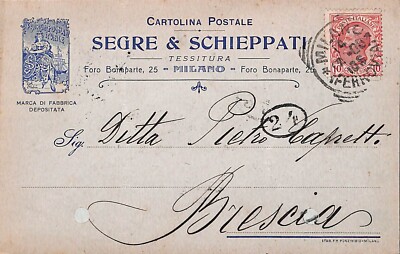 CARTOLINA POSTALE
SEGRE & SCHIEPPATI
TESSITURA
Foro Bonaparte, 25 - MILANO - Foro Bonaparte, 25
MARCA DI FABBRICA
DEPOSITATA
24
Sig. Ditta Pietro Capretti
Brescia